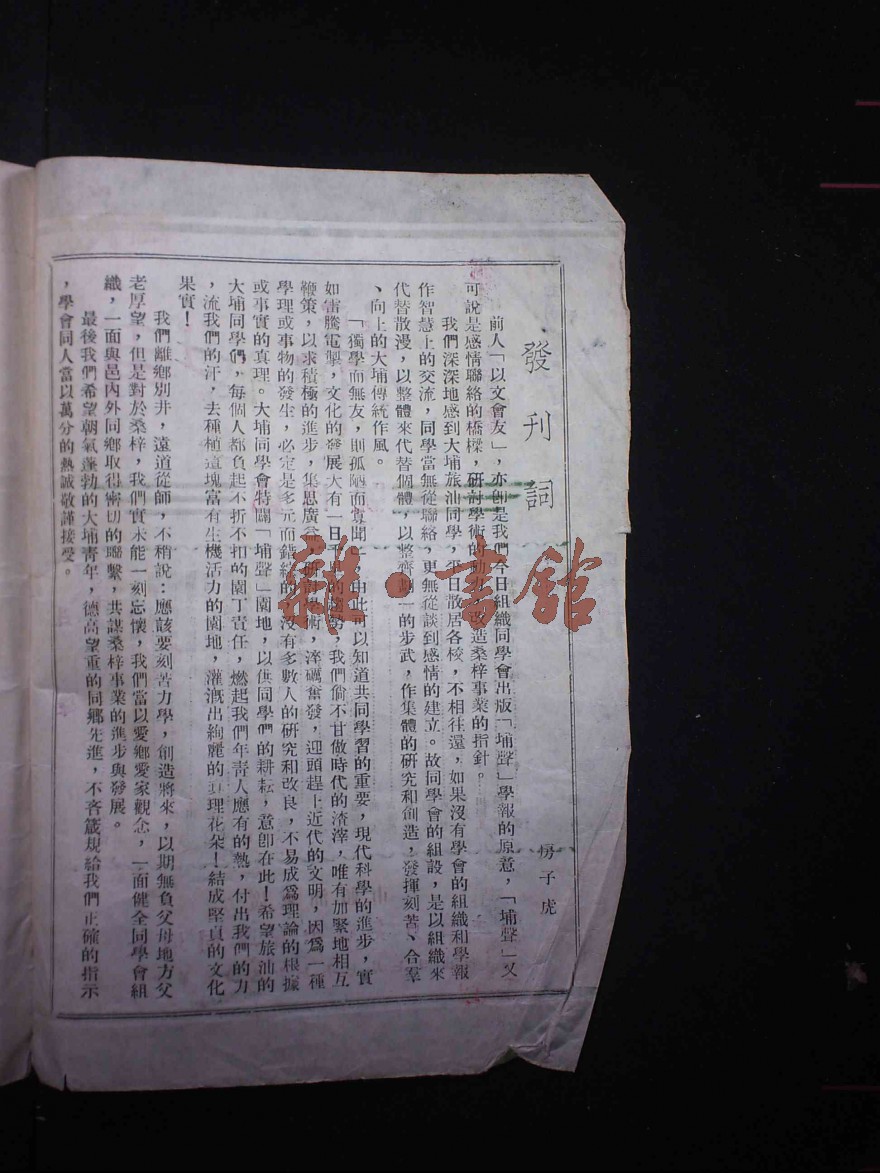 發刊詞
子虎
前人「以文會友」，亦卽是我們今日組織同學會出版「埔聲」學報的原意，「埔聲」又
可說是感情聯絡的橋樑，硏討學術的動力，改造桑梓事業的指針。
我們深深地感到大埔旅汕同學，平日散居各校，不相往還，如果沒有學會的組織和學報
作智慧上的交流，同學當無從聯絡，更無從談到感情的建立。故同學會的組設，是以組織來
代替散漫，以整體來代替個體，以整齊劃一的步武，作集體的硏究和創造，發揮刻苦、合羣
、向上的大埔傳統作風。
「獨學而無友，則孤陋而寡聞」，由此可以知道共同學習的重要，現代科學的進步，實
如雷騰電掣，文化的發展大有一日千里的趨勢，我們倘不甘做時代的渣滓，唯有加緊地相互
鞭策，以求積極的進步，集思廣益，硏討學術，淬礪奮發，迎頭趕上近代的文明，因爲一種
學理或事物的發生，必定是多元而錯綜的，沒有多數人的硏究和改良，不易成爲理論的根據
或事實的真理。大埔同學會特闢「埔聲」園地，以供同學們的耕耘，意卽在此！希望旅汕的
大埔同學們，每個人都負起不折不扣的園丁責任，燃起我們年靑人應有的熱，付出我們的力
，流我們的汗，去種植這塊富有生機活力的園地，灌漑出絢麗的真理花朵！結成堅貞的文化
果實！
我們離鄕別井，遠道從師，不稍說：應該要刻苦力學，創造將來，以期無負父母地方父
老厚望，但是對於桑梓，我們實未能一刻忘懷，我們當以愛鄕愛家觀念，一面健全同學會組
織，一面與邑內外同鄕取得密切的聯繫，共謀桑梓事業的進步與發展。
最後我們希望朝氣蓬勃的大埔靑年，德高望重的同鄕先進，不吝箴規給我們正確的指示
，學會同人當以萬分的熱誠敬謹接受。
雜·書館